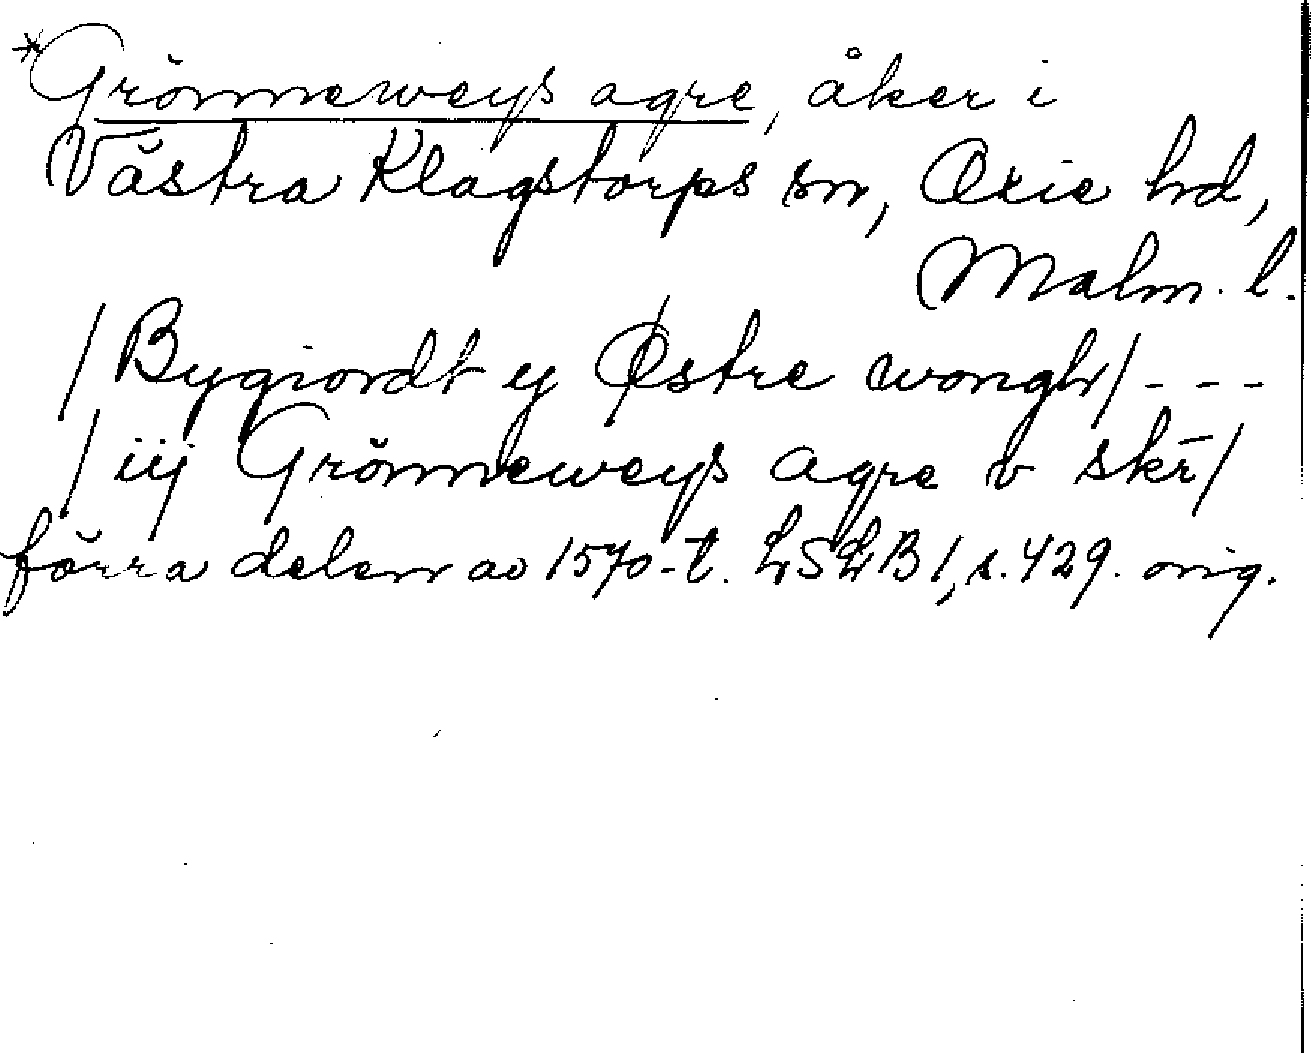 *Grönneweys agre, åker i
Västra Klagstorps sn, Oxie hd,
Malm. l.
/Bygiordt y Østre wongh/ - - -
/iij Grönneweys agre v skr̄/
förra delen av 1570-t. LSLB 1, s. 429. orig.